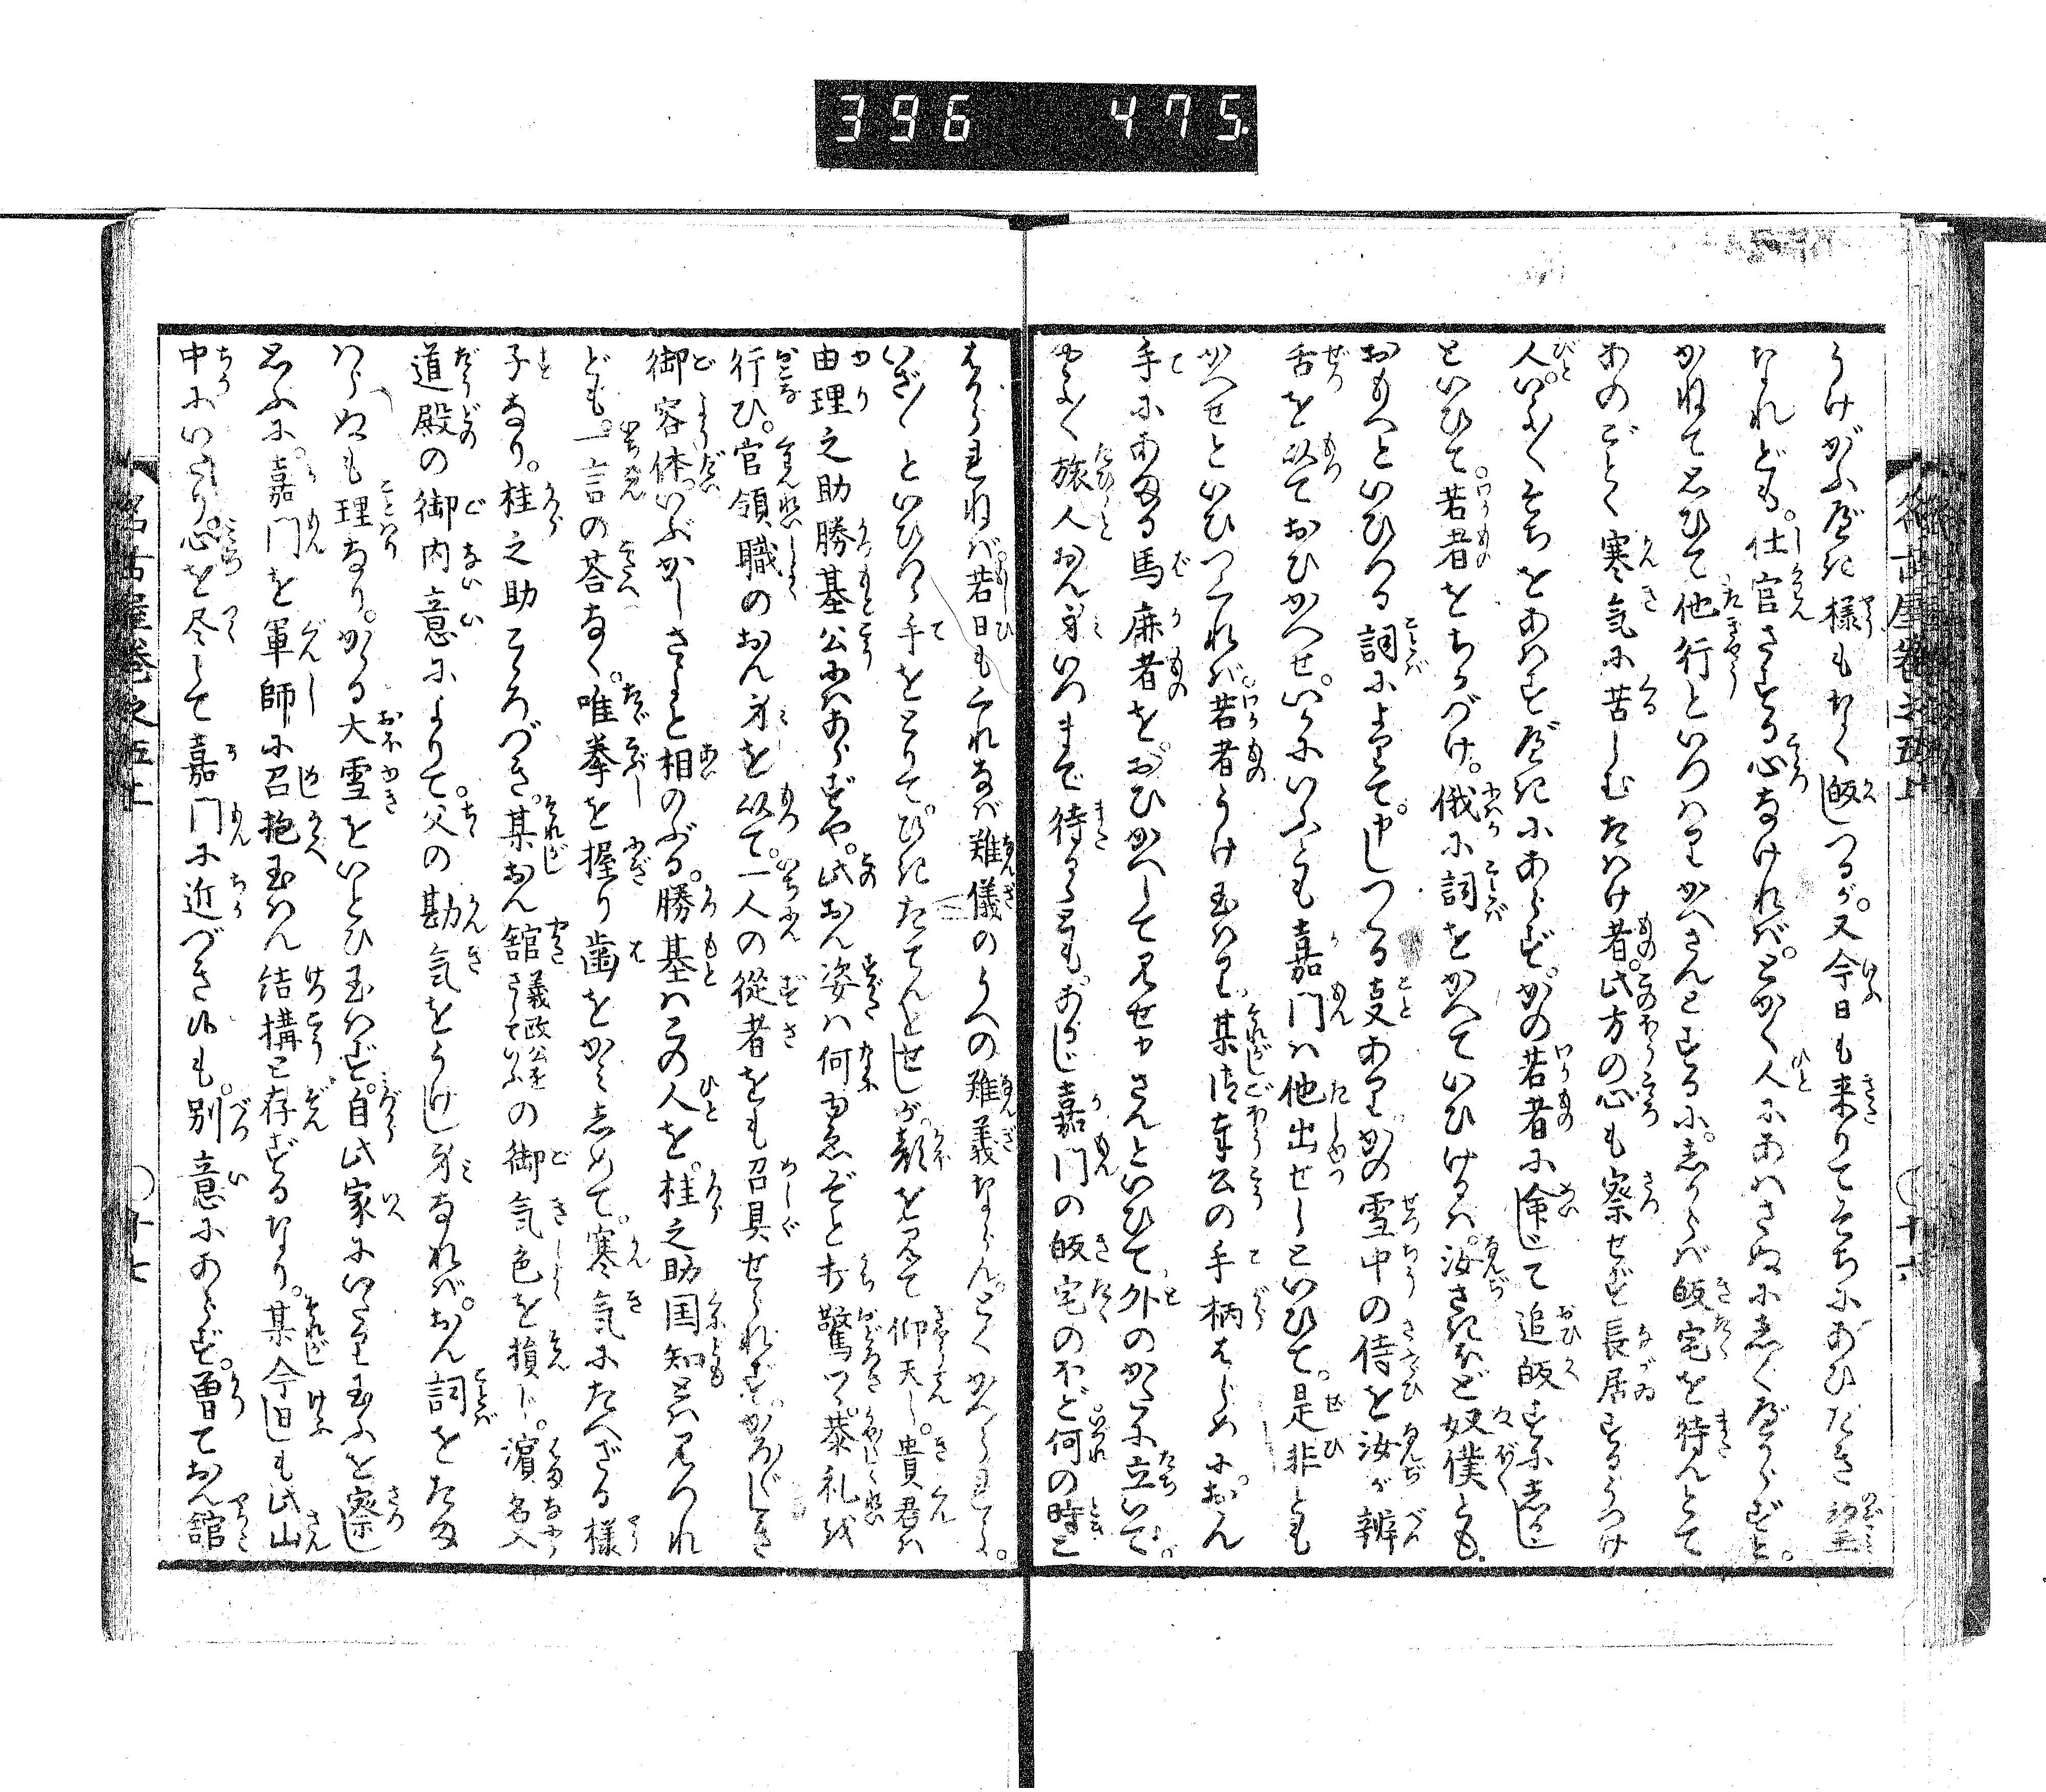 396 475.
うけがふべき様もなく皈しつるが。又今日も来りてそちにあひたき望
なれども。仕官さする心なければ。とかく人にあはさぬにしくべからずと。
かねて思ひて他行といつはりかへさんとするに。しからば皈宅を待んとて
あのごとく寒気に苦しむたはけ者。此方の心も察せず長居するうつけ
人。いよ〳〵そちをあはすべきにあらず。かの若者に命じて追皈すにしかじ
といひて。若者をちかづけ。俄に詞をかへていひけるは。汝さきほど奴僕とも
おもへといひつる詞によりて。申しつる事あり。かの雪中の侍を汝が辨
舌を以ておひかへせ。いかにいふとも嘉門は他出せしといひて。是非とも
かへせといひつくれば。若者うけ玉はり。某御奉公の手柄はじめに。おん
手にあまる馬廉者をおひかへして見せ申さんといひて外のかたに立いで。
やよ〳〵旅人おん身いつまで待るゝとも。あるじ嘉門の皈宅のほど何の時と
はかられねば若日もくれなば難儀のうへの難義ならん。とくかへられよ。
いざ〳〵といひつゝ手をとりて。ひきたてんとせしが。顔を見て仰天し。貴君は
由理之助勝基公にはあらずや。此おん姿は何ゆゑぞと打驚つゝ。恭礼を
行ひ。官領職のおん身を以て。一人の従者をも召具せられず。かろ〴〵しき
御容体。いぶかしさよと相のぶる。勝基は この人を。桂之助国知とは見つれ
ども。一言の荅なく。唯拳を握り歯をかみしめて。寒気にたへざる様
子なり。桂之助こゝろづき。某おん舘義政公をさしていふの御気色を損じ。濱名入
道殿の御内意によりて。父の勘気をうけし身なれば。おん詞をたま
はらぬも理なり。かゝる大雪をいとひ玉はず。自此家にいたり玉ふを察し
思ふに。嘉門を軍師に召抱玉はん結構と存ずるなり。某今日しも此山
中にいたり。心を尽して嘉門に近づき侍も。別意にあらず。曽ておん舘
名古屋巻之五上
十六
名古屋巻之五上
十七